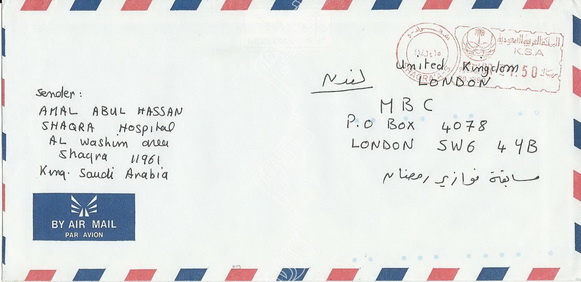 Sender:
AMAL ABUL HASSAN
SHAQRA Hospital
AL Washim area
Shaqra 11961
King. Saudi Arabia
BY AIR MAIL
PAR AVION
المملكة العربية السعودية
K.S.A
United Kingdom
لندن
LONDON
MBC
P.O Box 4078
LONDON SW6 4YB
مسابقة فوازير رمضان